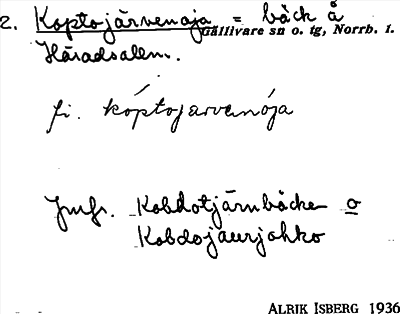 2. Koptojärvenoja = bäck å
Gällivare sn o. tg, Norrb. l.
Häradsalem.
fi. kóptojarvenója
Jmfr. Kobdotjärnbäcken o
Kobdojaurjohko
ALRIK ISBERG 1936